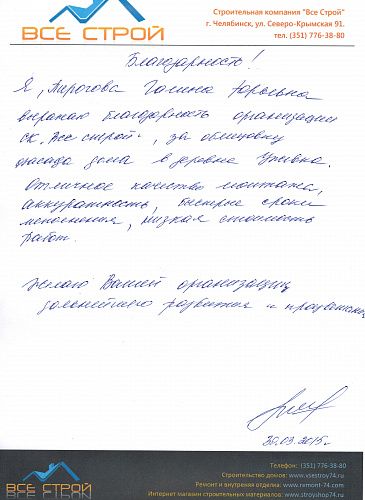 ВСЕ СТРОЙ
Строительная компания "Все Строй"
г. Челябинск, ул. Северо-Крымская 91.
тел. (351) 776-38-80
Благодарность!
Я, Пирогова Галина Юрьевна
выражаю благодарность организации
СК "Все строй", за облицовку
фасада дома в деревне
Отличное качество монтажа,
аккуратность, быстрые сроки
исполнения, низкая стоимость
работ.
Желаю Вашей организации
дальнейшего развития и процветания
30.03.2015г
ВСЕ СТРОЙ
Телефон: (351) 776-38-80
Строительство домов: www.vsestroy74.ru
Ремонт и внутреняя отделка: www.remont-74.com
Интернет магазин строительных материалов: www.stroyshop74.ru